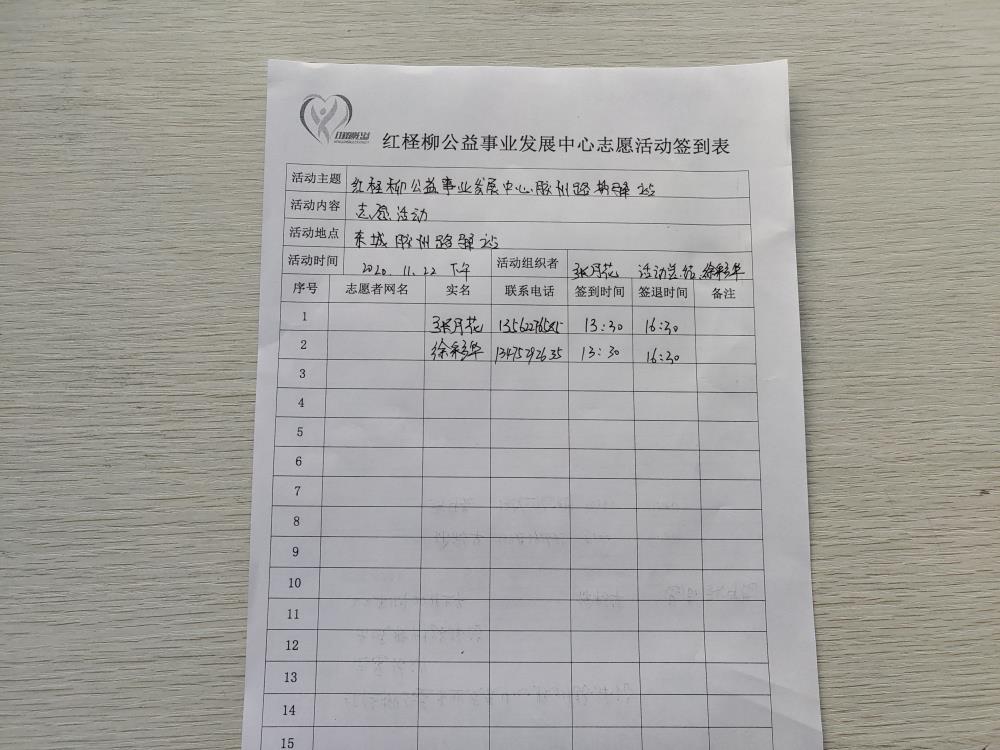 红柽柳公益事业发展中心志愿活动签到表
活动主题 红柽柳公益事业发展中心胶州路驿站
活动内容 志愿活动
活动地点 东城胶州路驿站
活动时间 2020.11.22 下午 活动组织者 张月花 活动总结:徐彩华
序号 志愿者网名 实名 联系电话 签到时间 签退时间 备注
1 张月花 13:30 16:30
2 徐彩华 13475292635 13:30 16:30
3
4
5
6
7
8
9
10
11
12
13
14
15